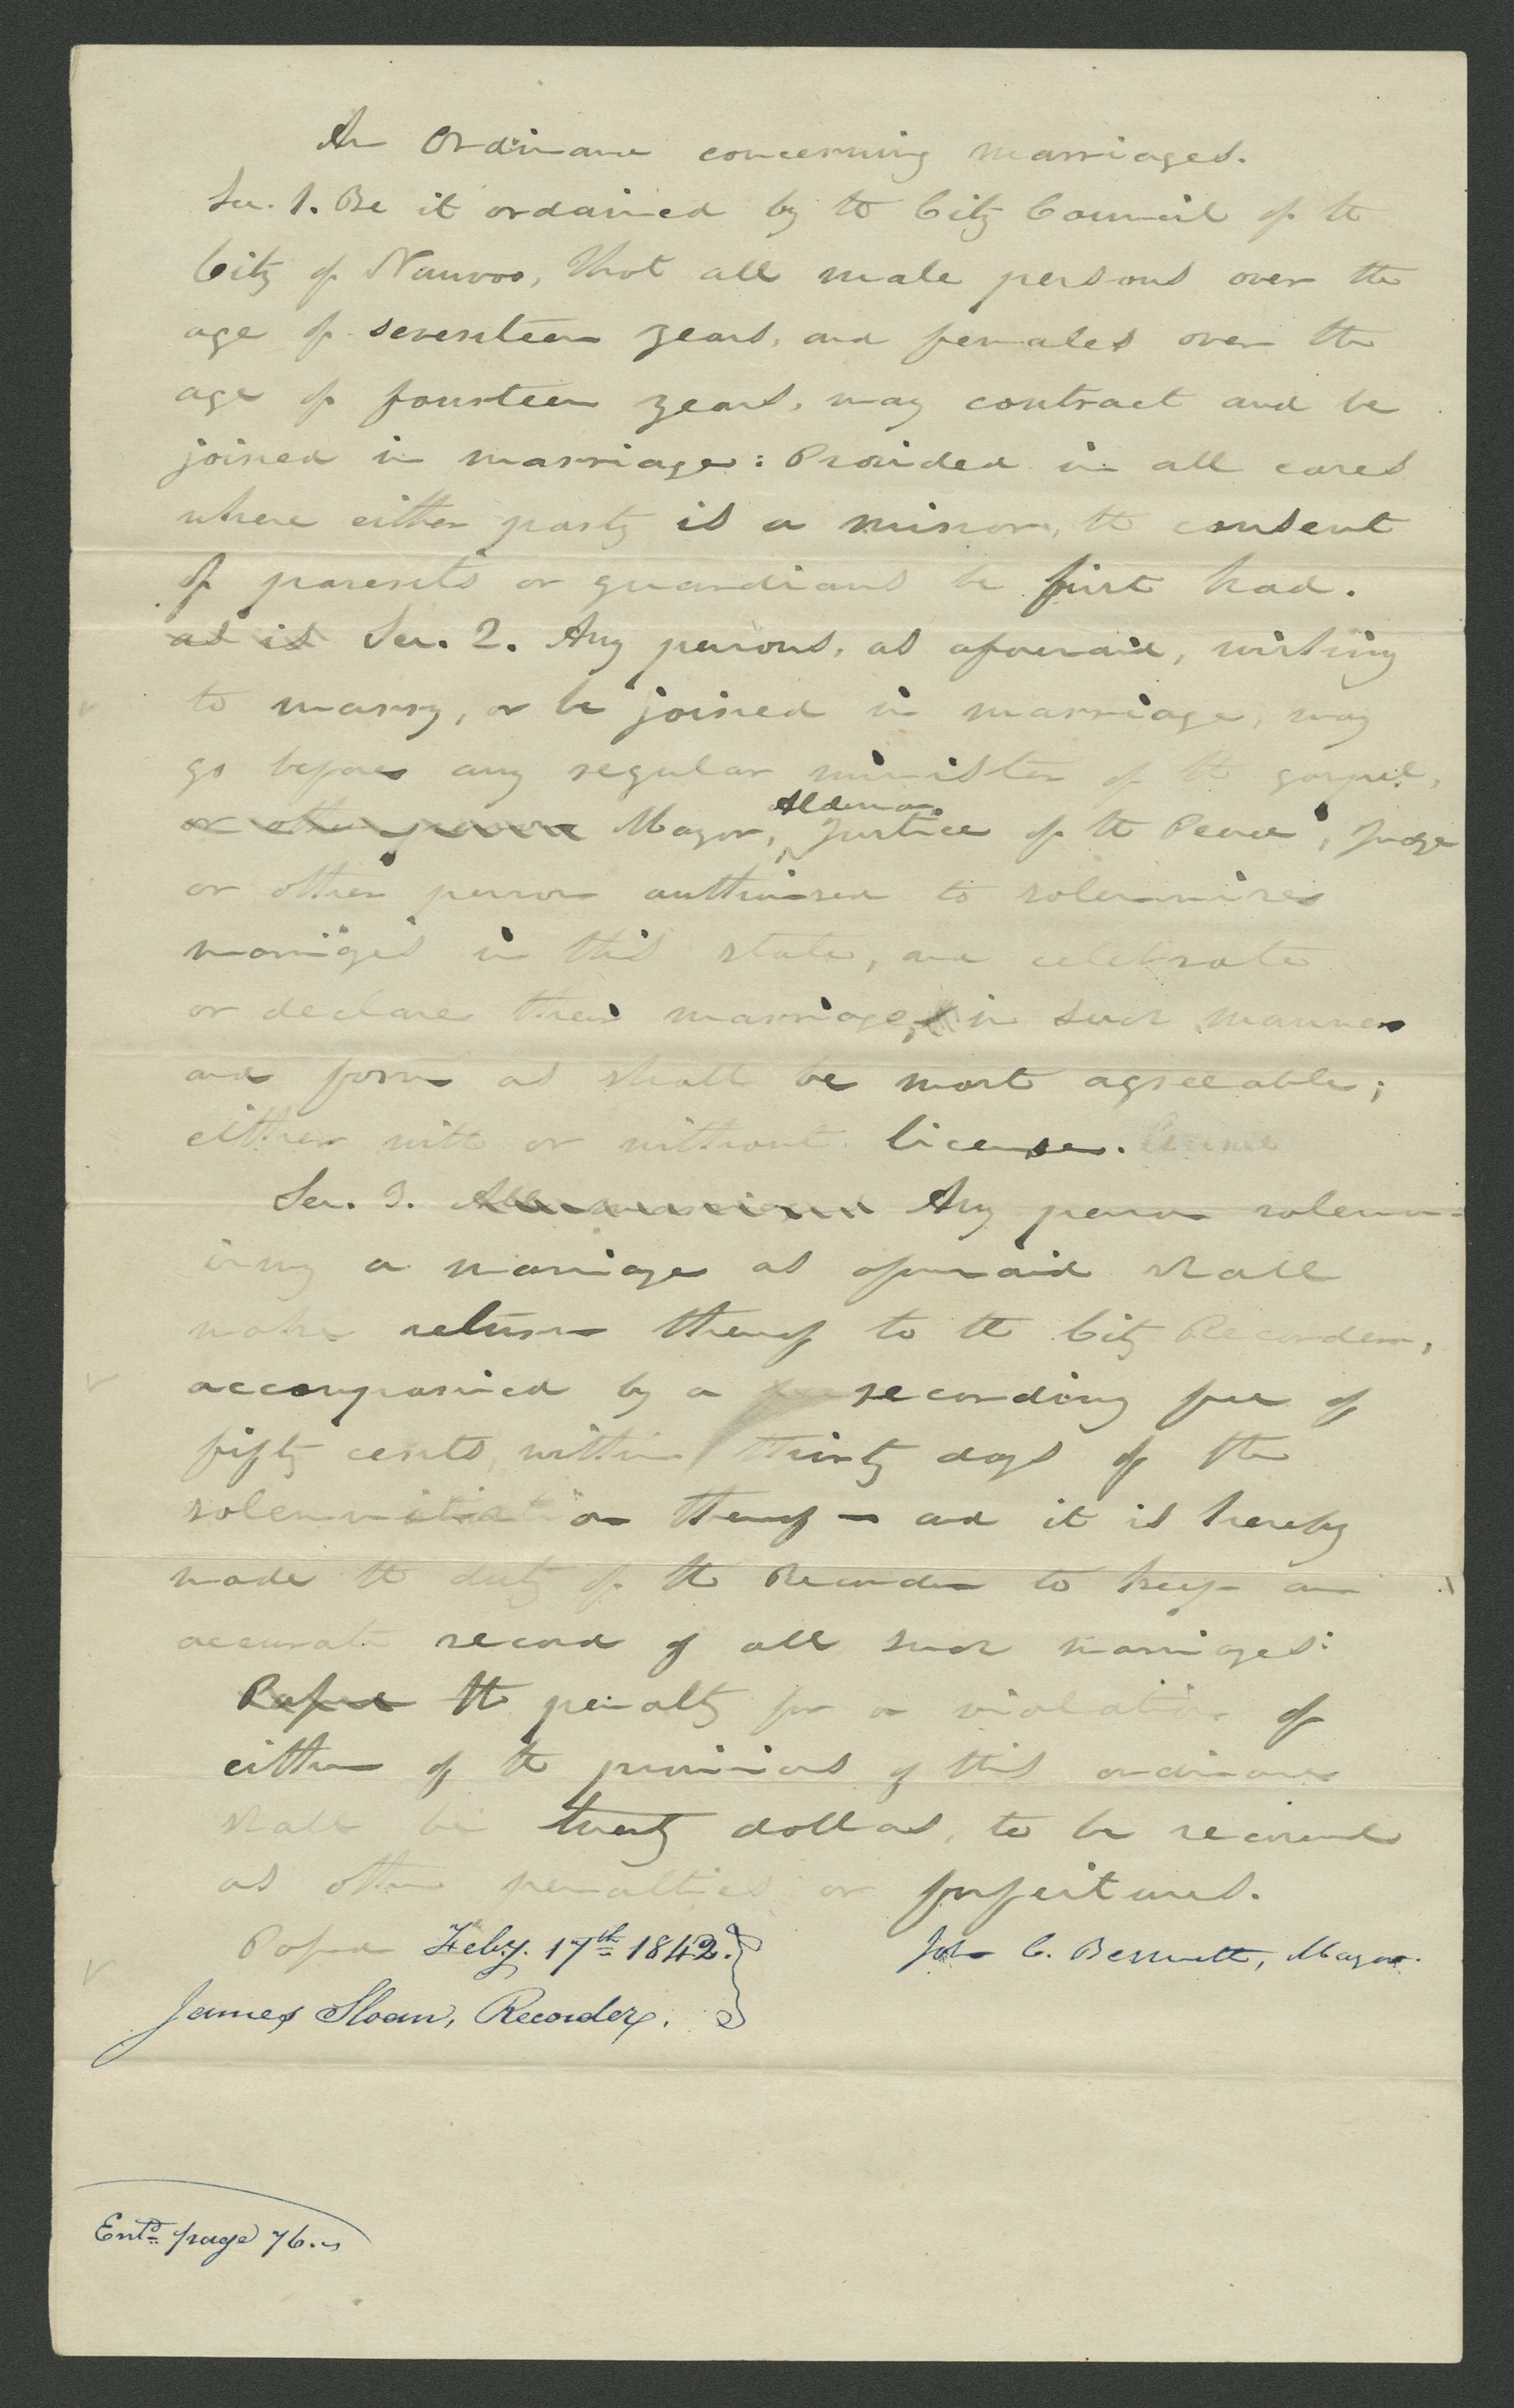 An Ordinance concerning marriages.
Sec. 1. Be it ordained by the City Council of the
City of Nauvoo, That all male persons over the
age of seventeen years, and females over the
age of fourteen years, may contract and be
joined in marriage: Provided in all cases
where either party is a minor, the consent
of parents or guardians be first had.
as is Sec. 2. Any persons, as aforesaid, wishing
to marry, or be joined in marriage, may
go before any regular minister of the gospel,
Alderman,
or other person Mayor, Justice of the Peace, Judge
or other person authorised to solemnize
marriages in this state, and celebrate
or declare their marriage, in such manner
and form as shall be most agreeable,
either with or without license.
Sec. 3. All marriages Any person solemn-
izing a marriage as aforesaid shall
make return thereof to the City Recorder,
accompanied by a recording fee of
fifty cents, within thirty days of the
solemnization thereof — and it is hereby
made the duty of the Recorder to keep an
accurate record of all such marriages:
Passed the penalty for a violation of
either of the provisions of this ordinance
shall be twenty dollars, to be recovered
as other penalties or forfeitures.
Passed Feby. 17th 1842. John C. Bennett, Mayor.
James Sloan, Recorder.
Entd page 76.